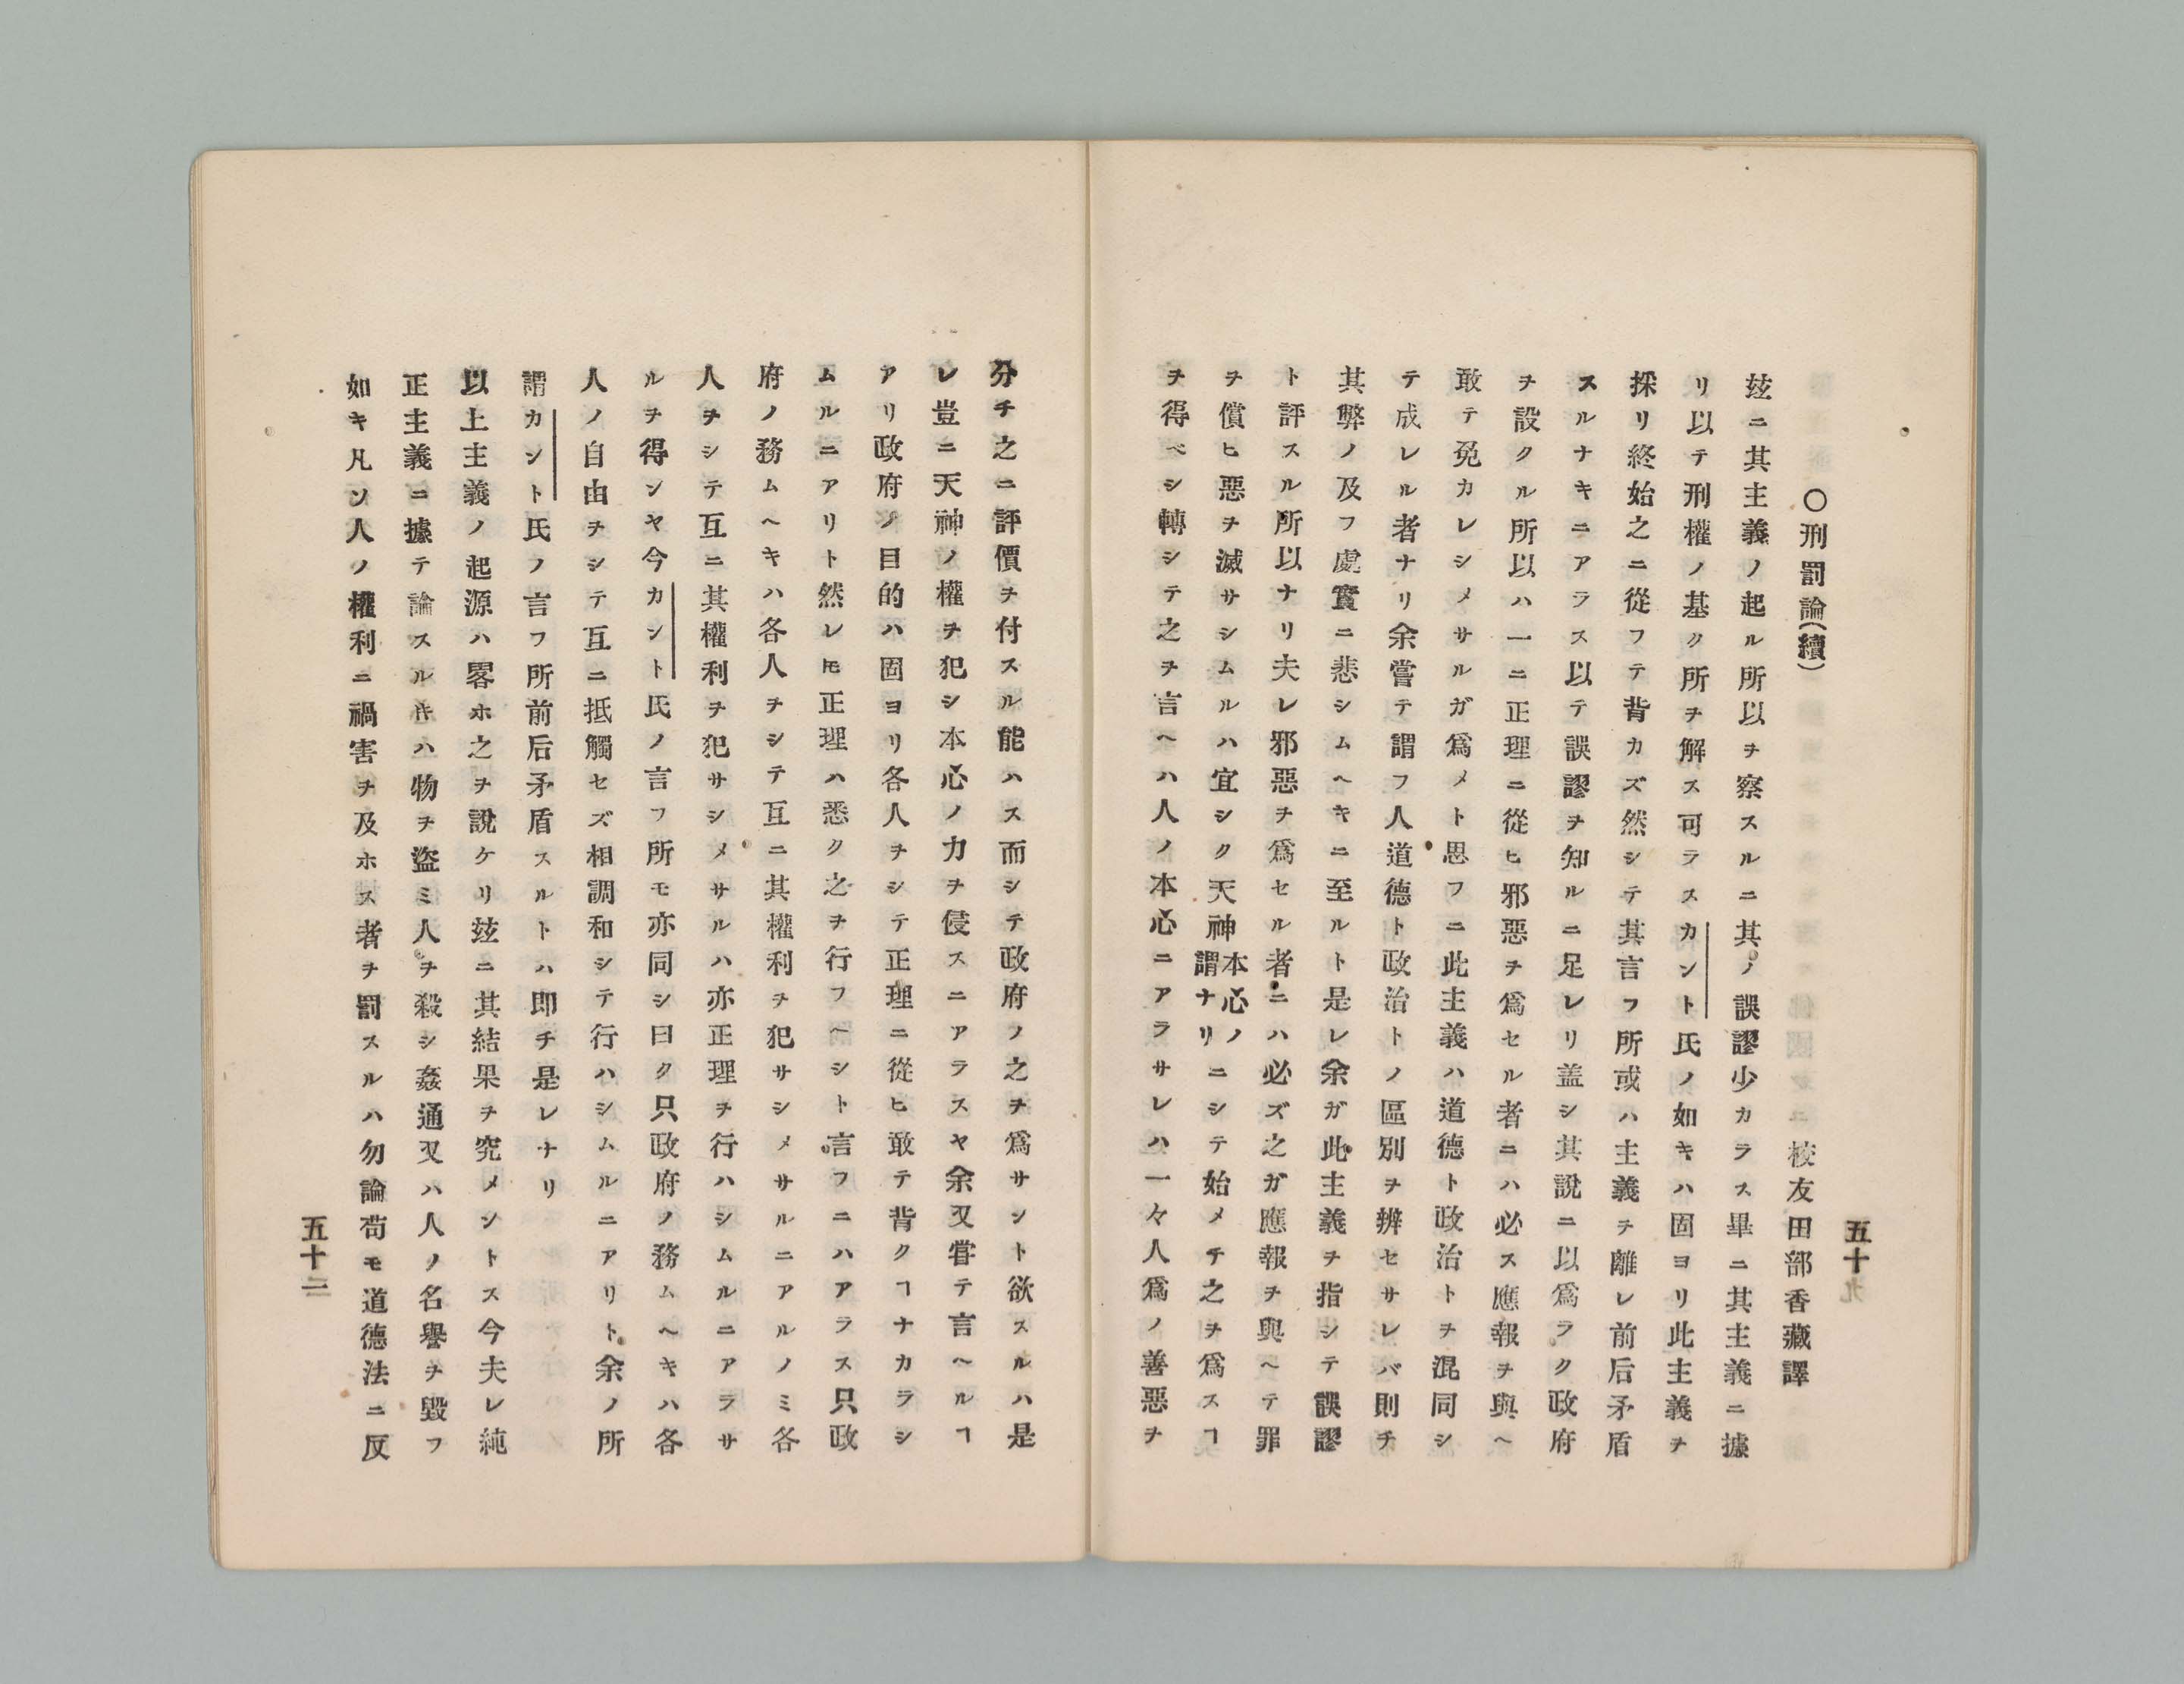 五十
○刑罰論(續)
校友田部香藏譯
玆ニ其主義ノ起ル所以ヲ察スルニ其ノ誤謬少カラス畢ニ其主義ニ據
リ以テ刑權ノ基ク所ヲ解ス可ラスカント氏ノ如キハ固ヨリ此主義ヲ
採リ終始之ニ從フテ背カズ然シテ其言フ所或ハ主義ヲ離レ前后矛盾
スルナキニアラス以テ誤謬ヲ知ルニ足レリ盖シ其說ニ以爲ラク政府
ヲ設クル所以ハ一ニ正理ニ從ヒ邪惡ヲ爲セル者ニハ必ス應報ヲ與ヘ
敢テ免カレシメサルガ爲メト思フニ此主義ハ道德ト政治トヲ混同シ
テ成レル者ナリ余嘗テ謂フ人道德ト政治トノ區別ヲ辨セサレバ則チ
其弊ノ及フ處實ニ悲シムヘキニ至ルト是レ余ガ此主義ヲ指シテ誤謬
ト評スル所以ナリ夫レ邪惡ヲ爲セル者ニハ必ズ之ガ應報ヲ與ヘテ罪
ヲ償ヒ惡ヲ滅サシムルハ宜シク天神本心ノ謂ナリニシテ始メテ之ヲ爲スヿ
ヲ得ベシ轉シテ之ヲ言ヘハ人ノ本心ニアラサレハ一々人爲ノ善惡ヲ
分チ之ニ評價ヲ付スル能ハス而シテ政府ノ之ヲ爲サント欲スルハ是
レ豈ニ天神ノ權ヲ犯シ本心ノ力ヲ侵スニアラスヤ余又甞テ言ヘルヿ
アリ政府ノ目的ハ固ヨリ各人ヲシテ正理ニ從ヒ敢テ背クヿナカラシ
ムルニアリト然レ𪜈正理ハ悉ク之ヲ行フヘシト言フニハアラス只政
府ノ務ムヘキハ各人ヲシテ互ニ其權利ヲ犯サシメサルニアルノミ各
人ヲシテ互ニ其權利ヲ犯サシメサルハ亦正理ヲ行ハシムルニアラサ
ルヲ得ンヤ今カント氏ノ言フ所モ亦同シ曰ク只政府ノ務ムヘキハ各
人ノ自由ヲシテ互ニ抵觸セズ相調和シテ行ハシムルニアリト余ノ所
謂カント氏フ言フ所前后矛盾スルトハ即チ是レナリ
以上主義ノ起源ハ畧ホ之ヲ說ケリ玆ニ其結果ヲ究メントス今夫レ純
正主義ニ據テ論スルキハ物ヲ盜ミ人ヲ殺シ姦通又ハ人ノ名譽ヲ毀フ
如キ凡ソ人ノ權利ニ禍害ヲ及ホス者ヲ罰スルハ勿論苟モ道德法ニ反
五十一